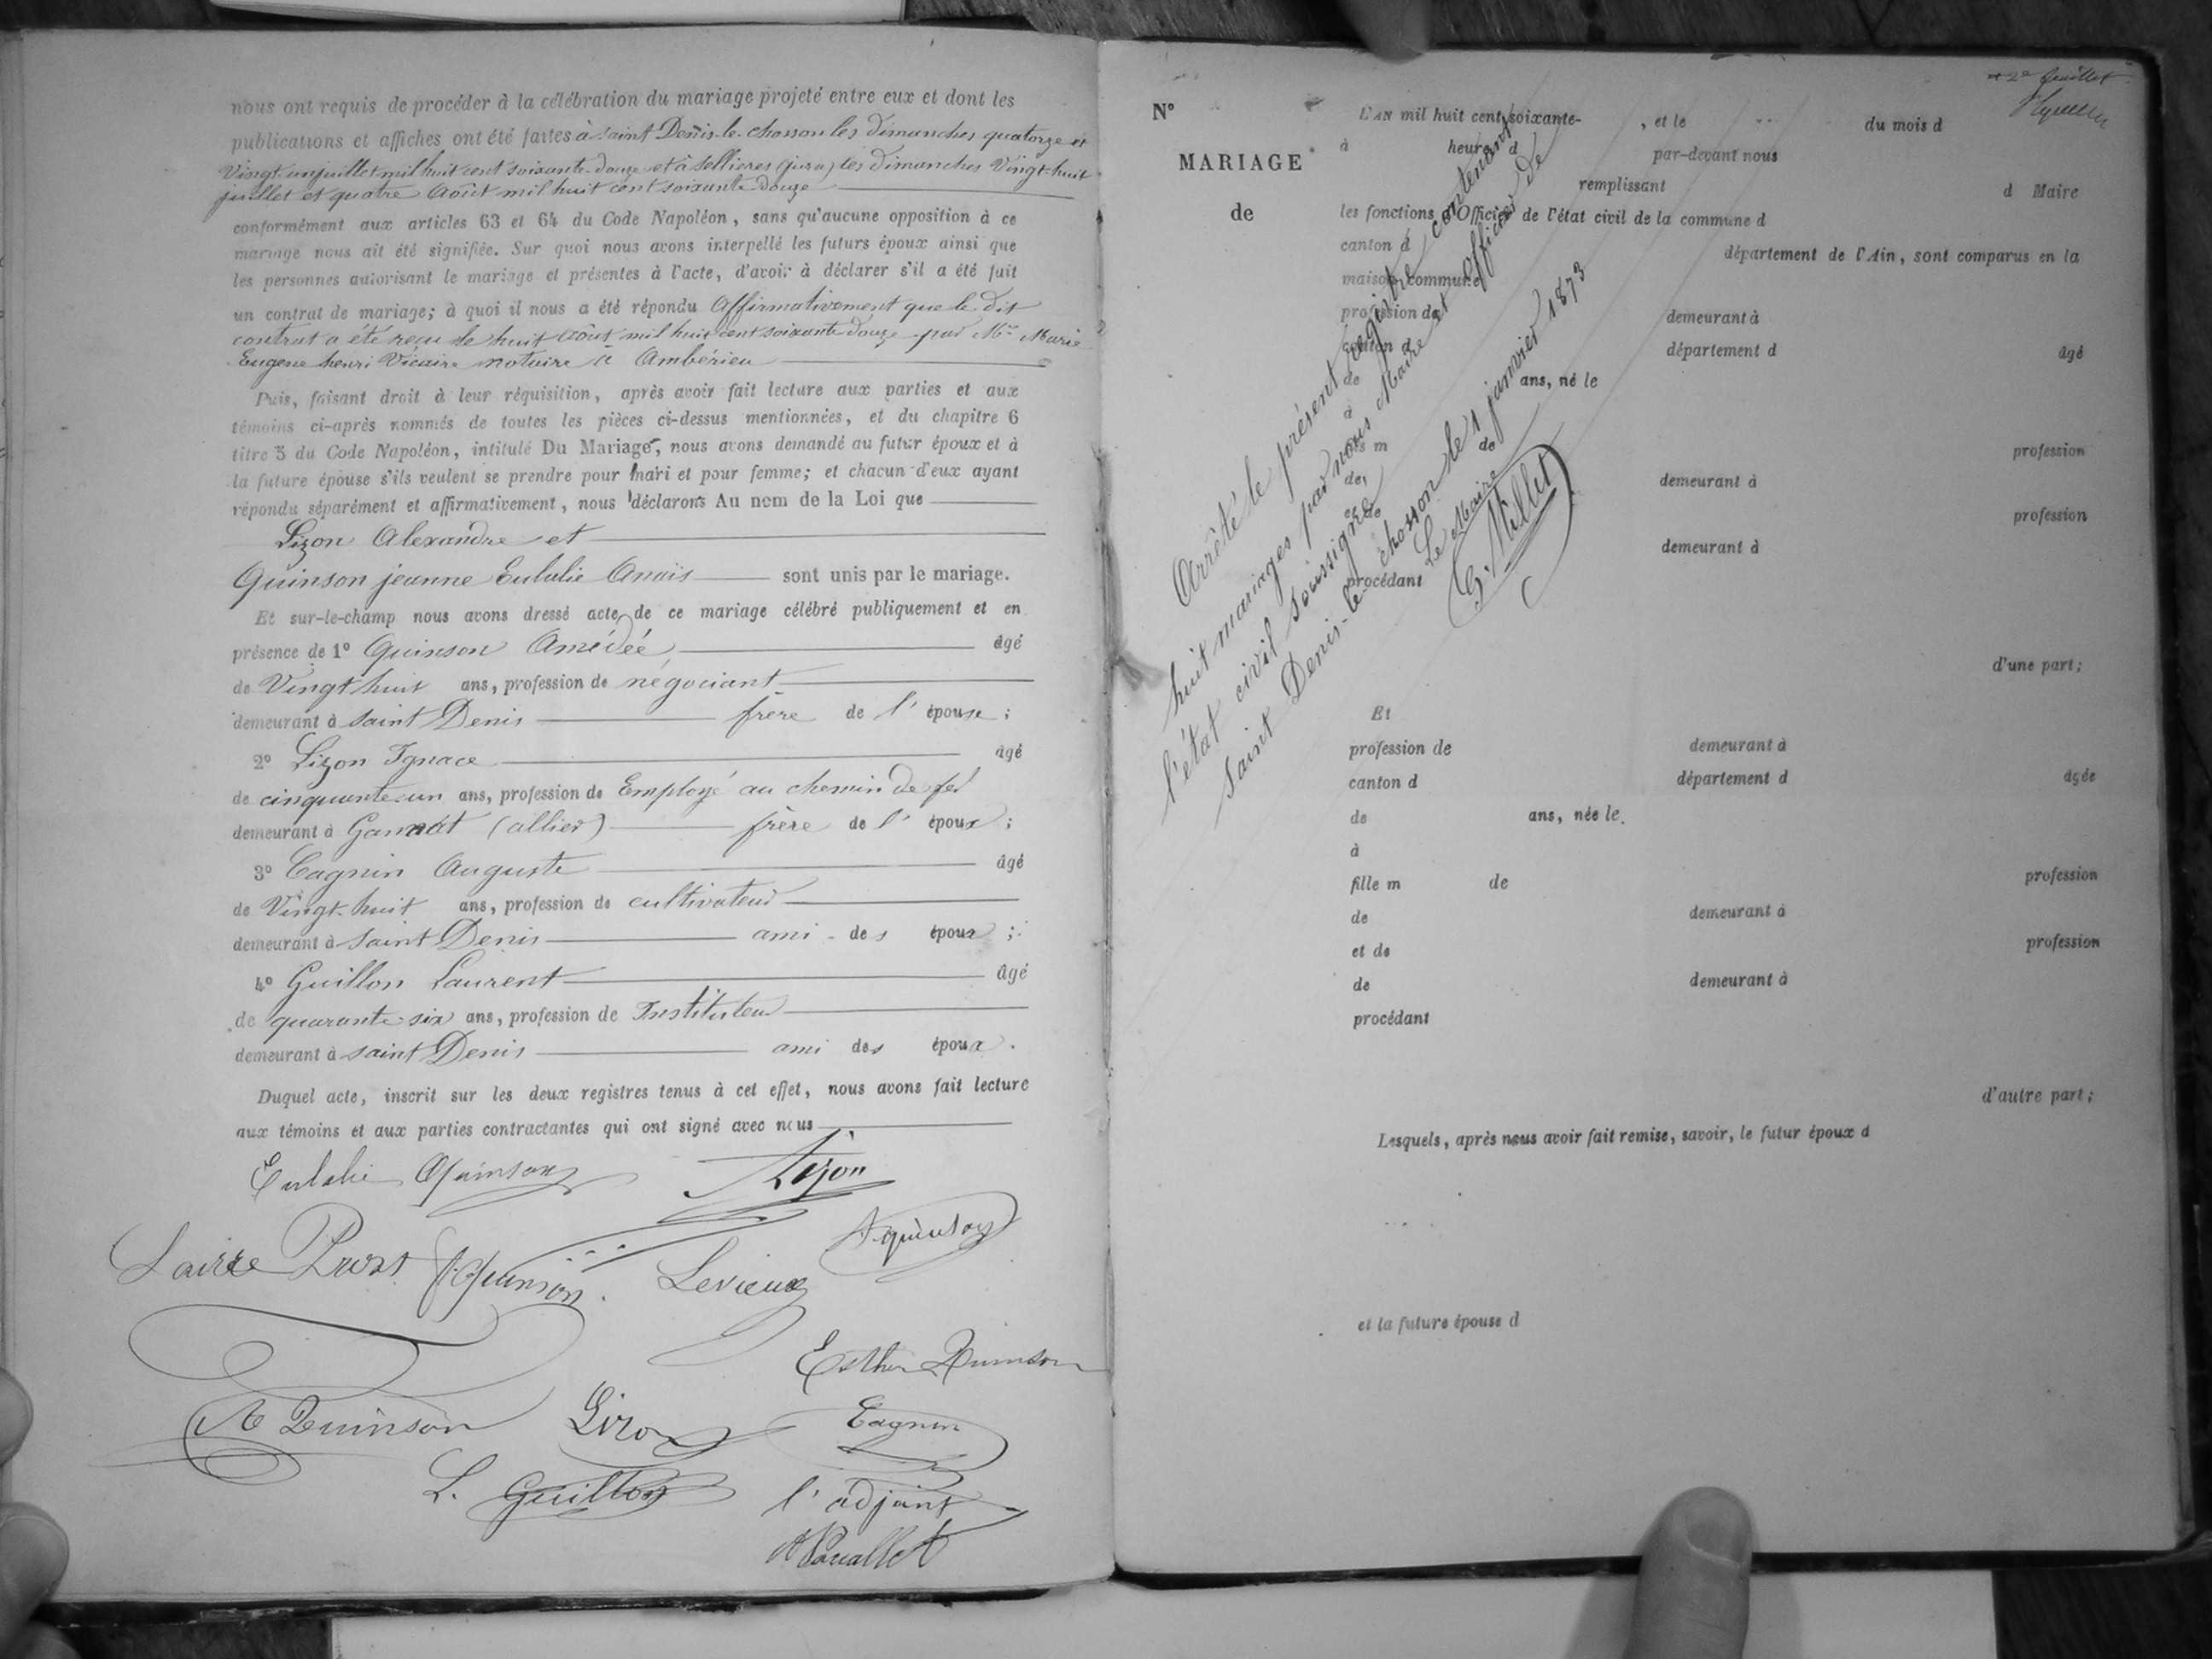 nous ont requis de procéder à la célébration du mariage projeté entre eux et dont les
publications et affiches ont été faites à saint Denis-le-chosson les dimanches quatorze et
Vingt un juillet mil huit cent soixante-douze et à Sellieres (jura) les dimanches Vingt-huit
juillet et quatre Août mil huit cent soixante douze
conformément aux articles 63 et 64 du Code Napoléon, sans qu'aucune opposition à ce
mariage nous ait été signifiée. Sur quoi nous avons interpellé les futurs époux ainsi que
les personnes autorisant le mariage et présentes à l'acte, d'avoir à déclarer s'il a été fait
un contrat de mariage; à quoi il nous a été répondu Affirmativement que le dit
contrat a été reçu le huit Août mil huit cent soixante douze par Me Marie
Eugene henri Vicaire notaire à Ambérieu
Puis, faisant droit à leur réquisition, après avoir fait lecture aux parties et aux
témoins ci-après nommés de toutes les pièces ci-dessus mentionnées, et du chapitre 6
titre 5 du Code Napoléon, intitulé Du Mariage, nous avons demandé au futur époux et à
la future épouse s'ils veulent se prendre pour mari et pour femme; et chacun d'eux ayant
répondu séparément et affirmativement, nous déclarons Au nom de la Loi que
Lizon Alexandre et
Quinson jeanne Eulalie Anaïs sont unis par le mariage.
Et sur-le-champ nous avons dressé acte de ce mariage célébré publiquement et en
présence de 1° Quinson Amédée âgé
de Vingt huit ans, profession de négociant
demeurant à saint Denis frère de l' épouse;
2° Lizon Ignace âgé
de cinquante-un ans, profession de Employé au chemin de fer
demeurant à Gannat (allier) frère de l' époux;
3° Cagnin Auguste âgé
de Vingt-huit ans, profession de cultivateur
demeurant à saint Denis ami des époux;
4° Guillon Laurent âgé
de quarante six ans, profession de Instituteur
demeurant à saint Denis ami des époux.
Duquel acte, inscrit sur les deux registres tenus à cet effet, nous avons fait lecture
aux témoins et aux parties contractantes qui ont signé avec nous
Eulalie Quinson Lizon
Quinson
Quinson Levieux
Esther Quinson
Quinson Lizon Cagnin
L. Guillon l'adjoint
2e feuillet
N° L'AN mil huit cent soixante- , et le du mois d
à heure d par-devant nous
MARIAGE remplissant d Maire
de les fonctions d'Officier de l'état civil de la commune d
canton d département de l'Ain, sont comparus en la
maison commune
profession de demeurant à
canton d département d âgé
de ans, né le
à
fils m de profession
de demeurant à
et de profession
demeurant à
procédant
d'une part;
Arrêté le présent registre contenant
huit mariages par nous Maire et officier de
l'état civil soussigné
Saint Denis-le-chosson le 1 janvier 1873
Le Maire
G. Millet
Et
profession de demeurant à
canton d département d âgée
de ans, née le
à
fille m de profession
de demeurant à
et de profession
de demeurant à
procédant
d'autre part;
Lesquels, après nous avoir fait remise, savoir, le futur époux d
et la future épouse d